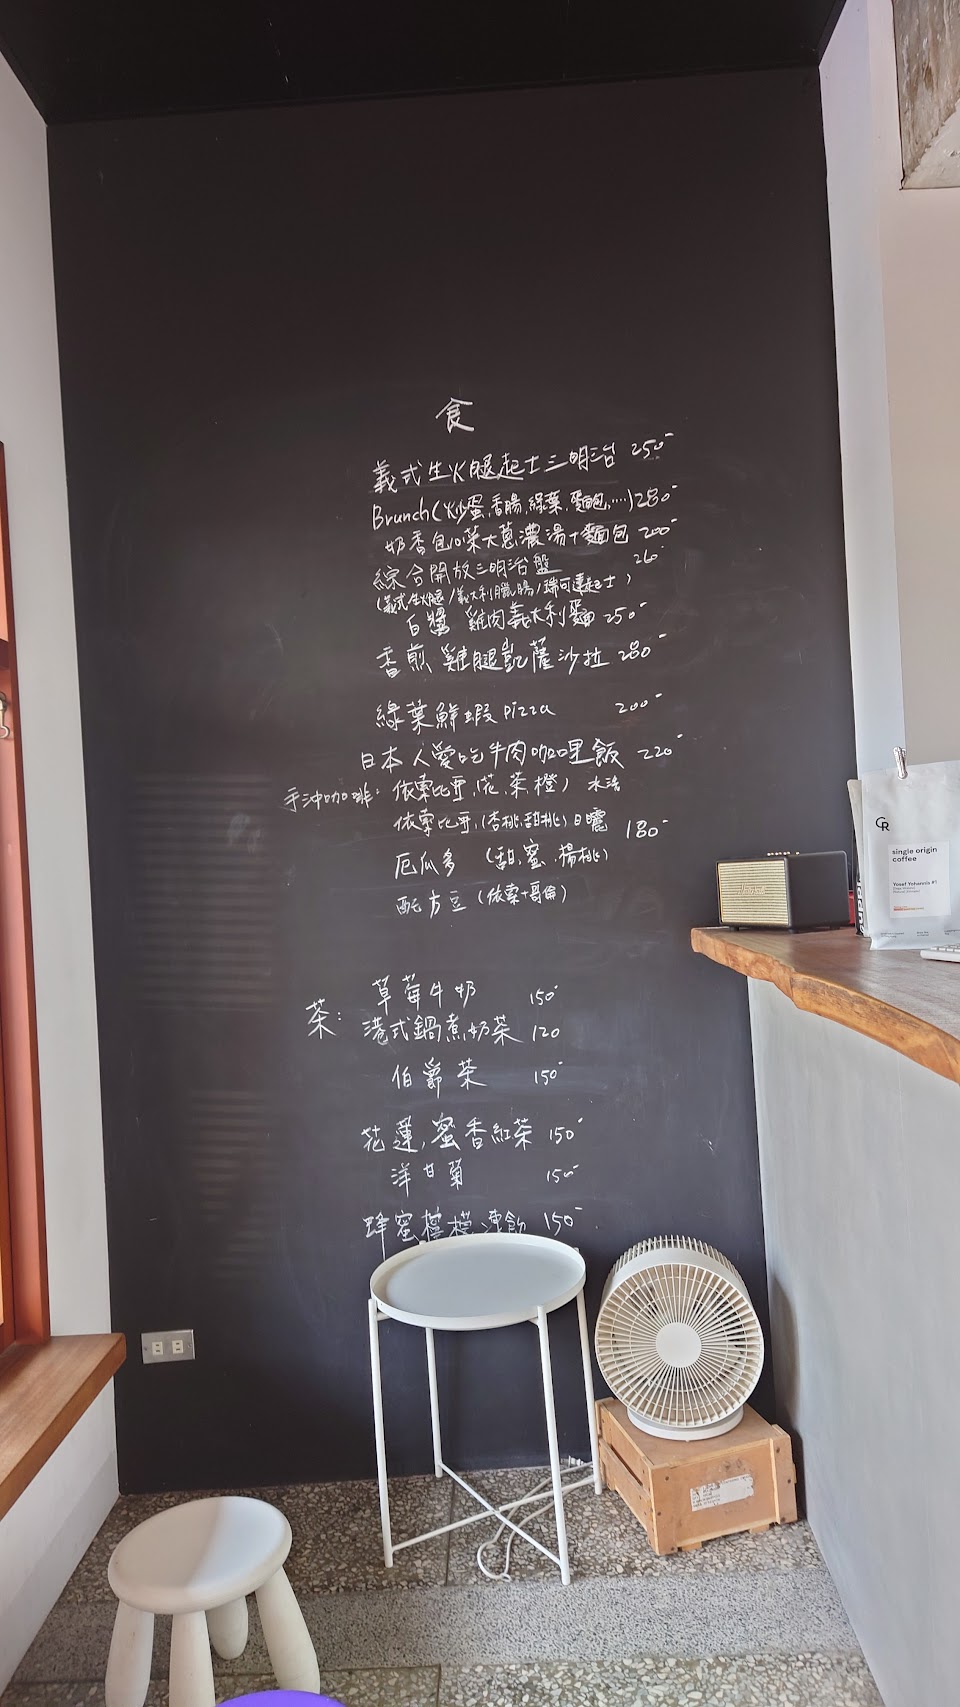 食
義式生火腿起士三明治 250-
Brunch(炒蛋.香腸.綠葉.麵包,....)280-
奶香包心菜大蔥濃湯+麵包 200-
綜合開放三明治盤 260-
(義式生火腿/義大利臘腸/瑞可達起士)
白醬 雞肉義大利麵 250-
香煎 雞腿凱薩沙拉 280-
綠葉鮮蝦 pizza 200-
日本人愛吃牛肉咖哩飯 220-
手沖咖啡: 依索比亞,(花,茶,橙) 水洗
依索比亞,(杏桃,甜桃)日曬 180-
厄瓜多 (甜,蜜,楊桃)
配方豆 (依索+哥倫)
草莓牛奶 150-
茶: 港式鍋煮奶茶 120
伯爵茶 150-
花蓮,蜜香紅茶 150-
洋甘菊 150-
蜂蜜檸檬凍飲 150-
CR
single origin
coffee
Yosef Yohannis #1
Marshall